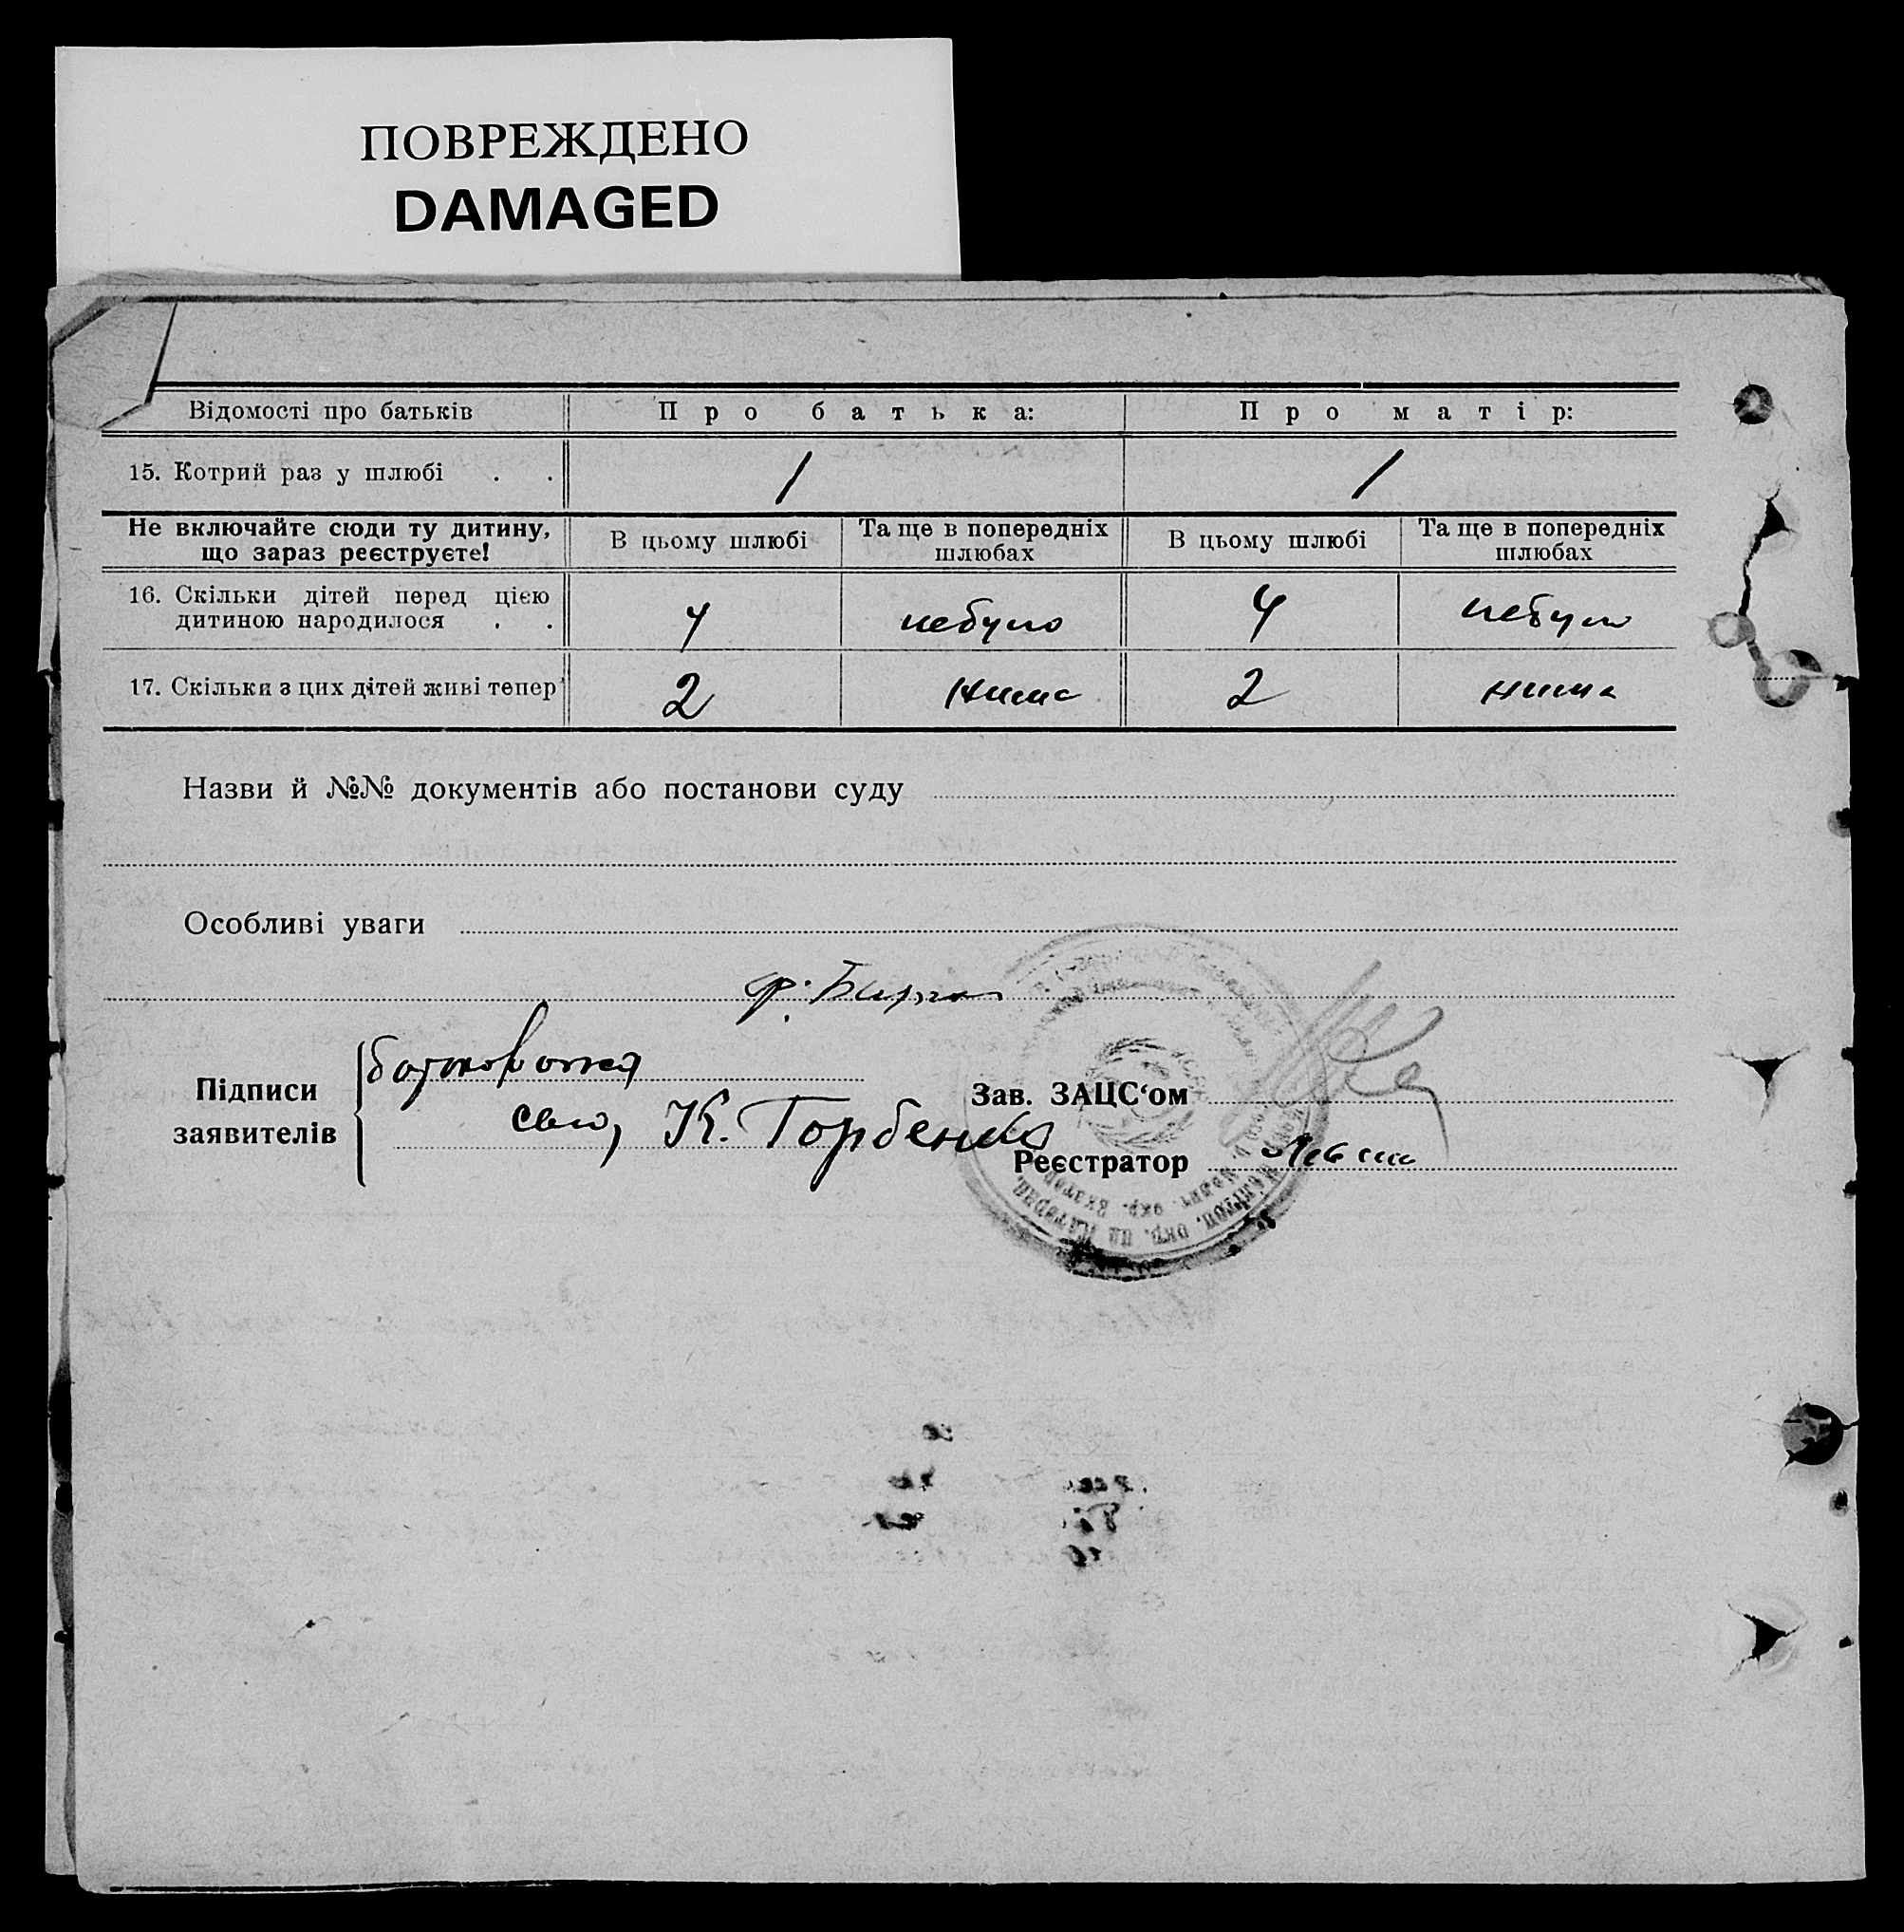 ПОВРЕЖДЕНО
DAMAGED
Відомості про батьків Про батька: Про матір:
15. Котрий раз у шлюбі . . 1 1
Не включайте сюди ту дитину, що зараз реєструєте! В цьому шлюбі Та ще в попередніх шлюбах В цьому шлюбі Та ще в попередніх шлюбах
16. Скільки дітей перед цією
дитиною народилося . . 4 небуло 4 небуло
17. Скільки з цих дітей живі тепер 2 нима 2 нима
Назви й №№ документів або постанови суду
Особливі уваги
Підписи
заявителів
К. Горбенко
Зав. ЗАЦС‘ом
Реєстратор